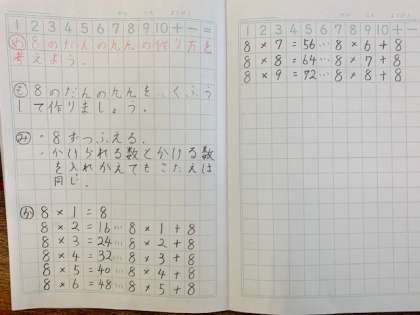 1 2 3 4 5 6 7 8 9 10 + − =
め 8のだんの九九の作り方を
考えよう。
そ 8のだんの九九を、くふう
して作りましょう。
み ・8ずつふえる。
・かけられる数とかける数
を入れかえてもこたえは
同じ。
か 8×1=8
8×2=16…8×1+8
8×3=24…8×2+8
8×4=32…8×3+8
8×5=40…8×4+8
8×6=48…8×5+8
1 2 3 4 5 6 7 8 9 10 + − =
8×7=56…8×6+8
8×8=64…8×7+8
8×9=72…8×8+8